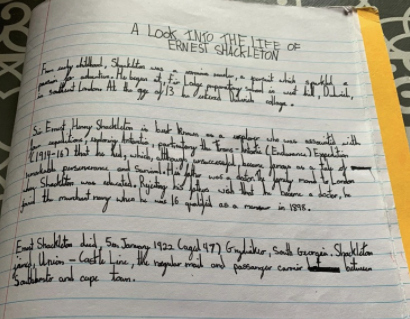 A LOOK INTO THE LIFE OF
ERNEST SHACKLETON
From early childhood, Shackleton was a reader, a pursuit which a
passion for adventure. He began at Fir Lodge preparatory school in west hill, Dulwich,
in southeast London. At the age of 13 he entered Dulwich college.
Sir Ernest Henry Shackleton is best known as a explorer who was associated with
four expeditions exploring Antarctic, particularly the Trans-Antarctic (Endurance) Expedition
(1914-16) that he led, which, although unsuccessful became famous as a tale of
remarkable perseverance and survival. His father was a doctor the family moved to London
Shackleton was educated. Rejecting his fathers wish that he became a doctor, he
joined the merchant navy when he was 16 qualified as a mariner in 1898.
Ernest Shackleton died, 5th January 1922 (aged 47) Grytviken, South Georgia. Shackleton
joined, Union - Castle Line, the regular mail and passenger carrier between
Southampton and cape town.